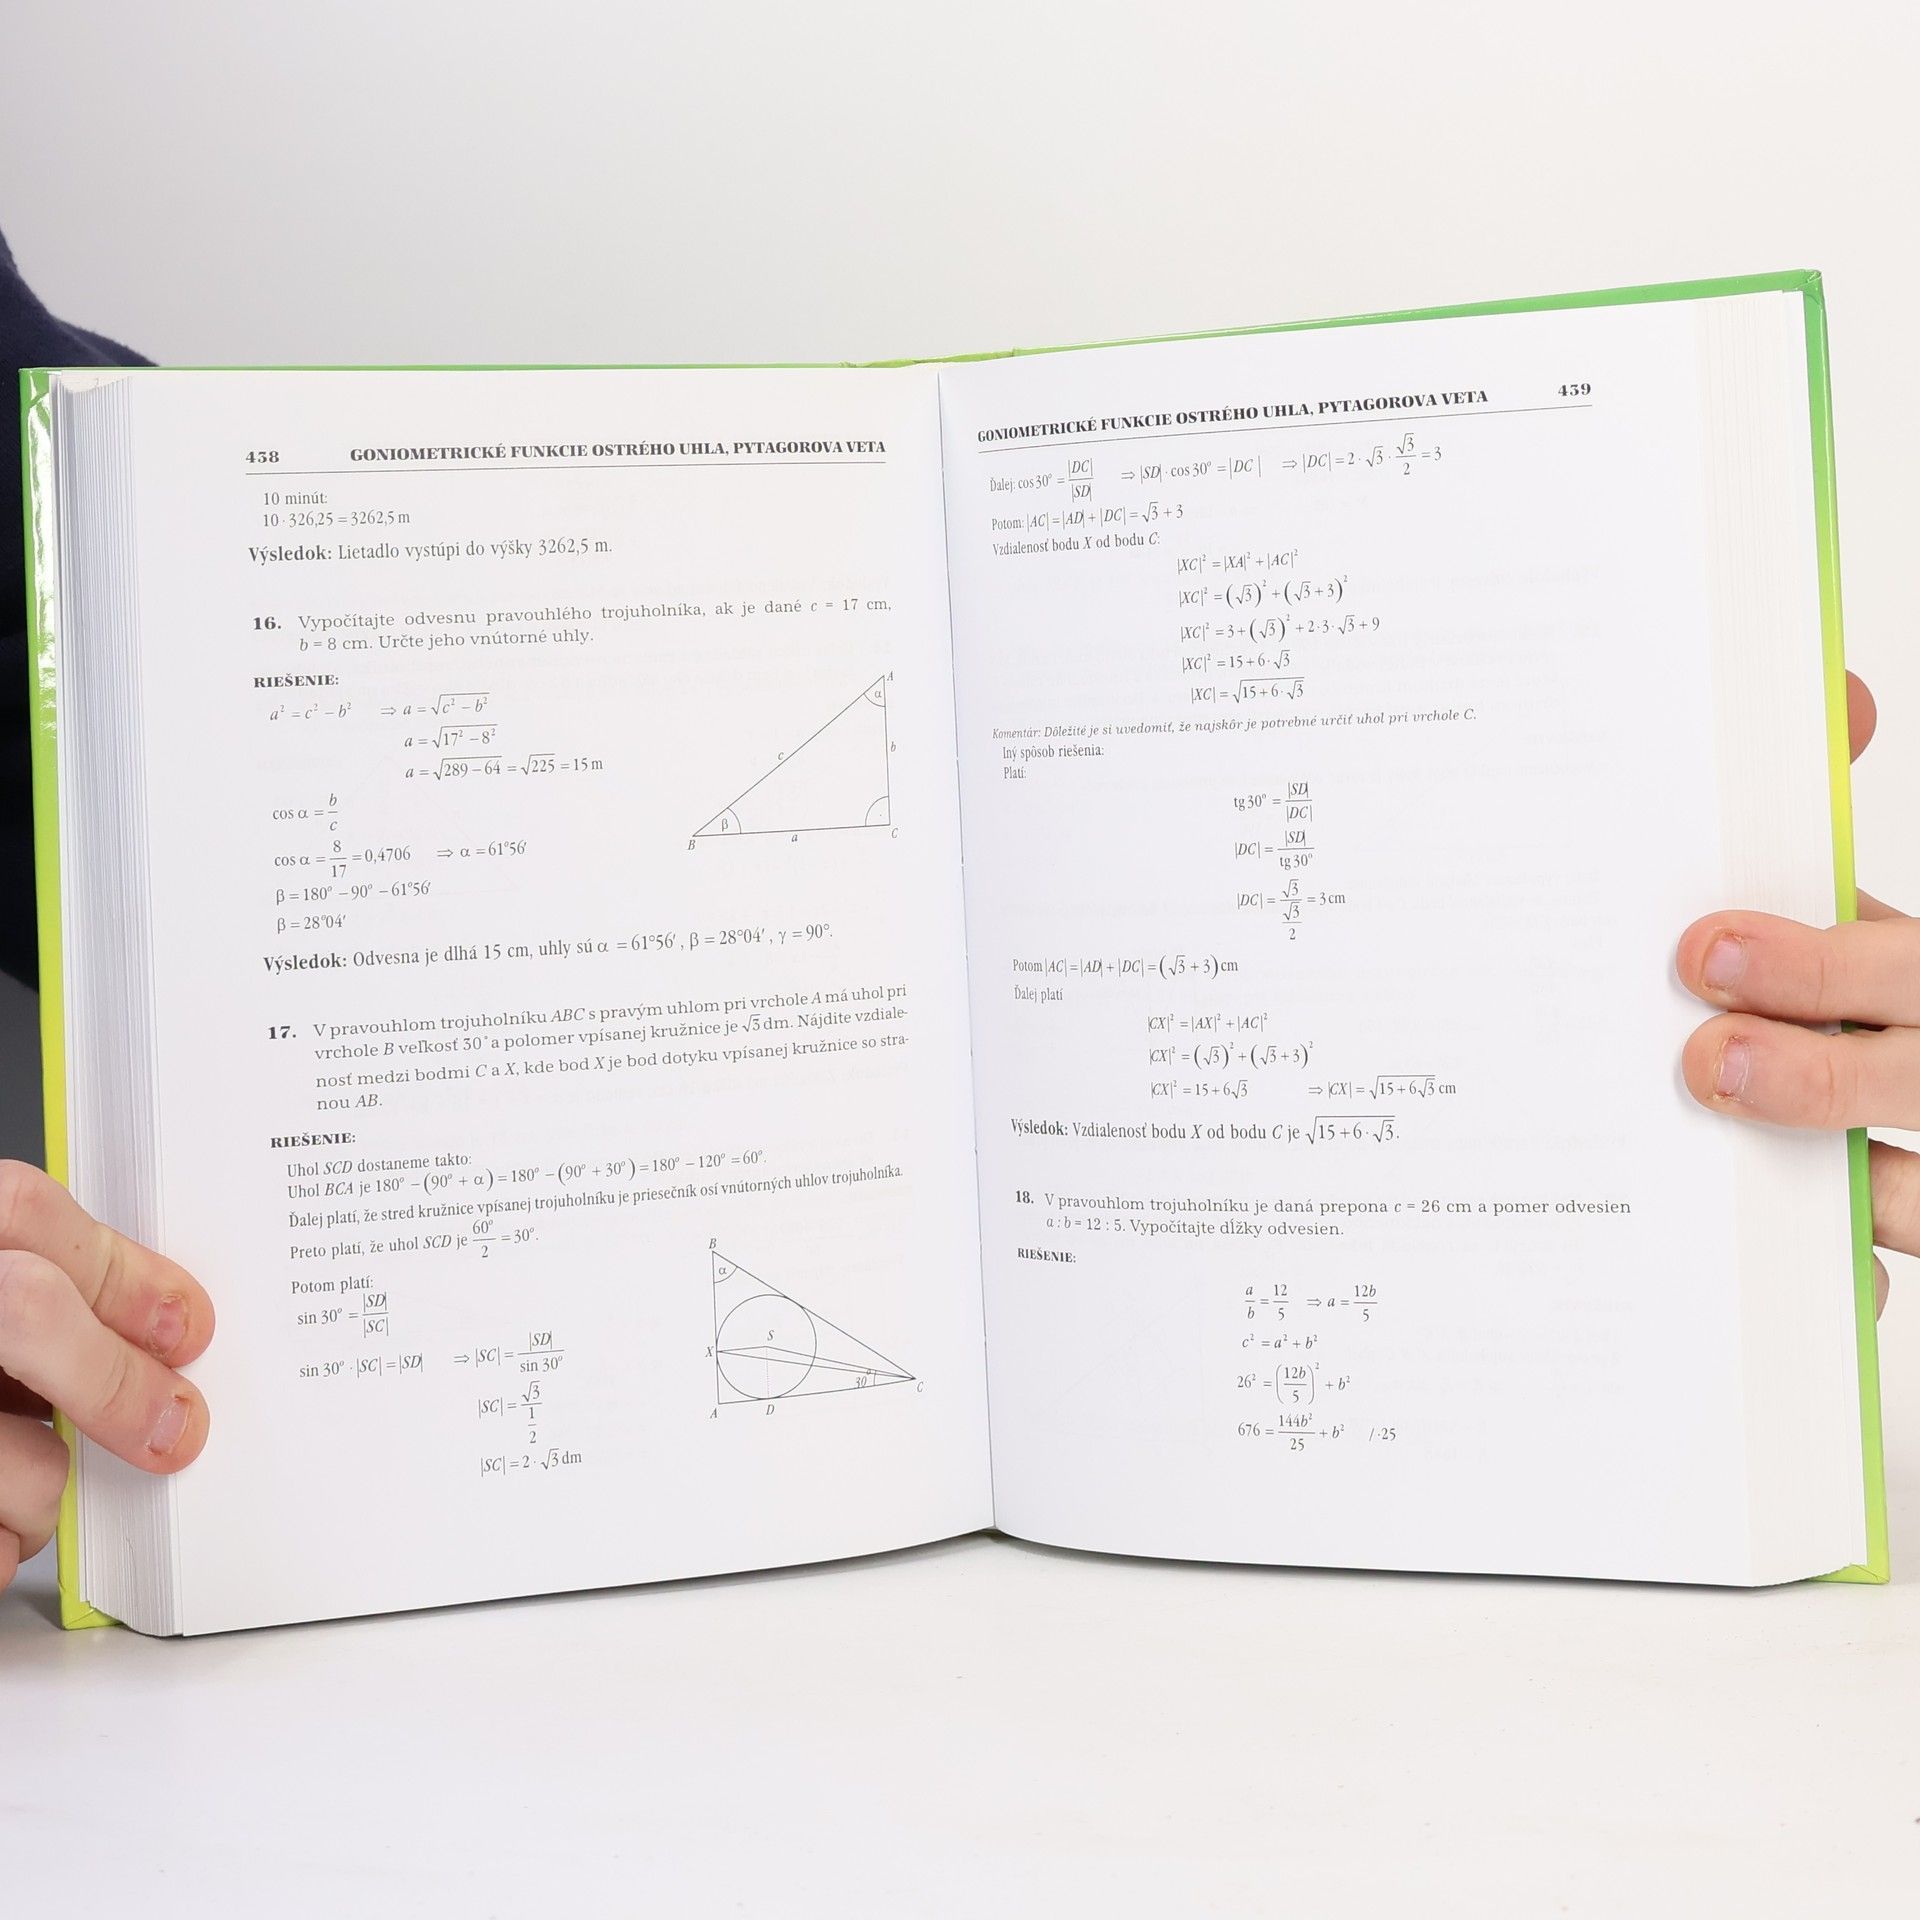 438 GONIOMETRICKÉ FUNKCIE OSTRÉHO UHLA, PYTAGOROVA VETA
10 minút:
10 · 326,25 = 3262,5 m
Výsledok: Lietadlo vystúpi do výšky 3262,5 m.
16. Vypočítajte odvesnu pravouhlého trojuholníka, ak je dané c = 17 cm,
b = 8 cm. Určte jeho vnútorné uhly.
RIEŠENIE:
a² = c² – b² ⇒ a = √(c² – b²)
a = √(17² – 8²)
a = √(289 – 64) = √225 = 15 m
cos α = b/c
cos α = 8/17 = 0,4706 ⇒ α = 61°56′
β = 180° – 90° – 61°56′
β = 28°04′
A
α
c
b
β
B
a
C
Výsledok: Odvesna je dlhá 15 cm, uhly sú α = 61°56′, β = 28°04′, γ = 90°.
17. V pravouhlom trojuholníku ABC s pravým uhlom pri vrchole A má uhol pri
vrchole B veľkosť 30° a polomer vpísanej kružnice je √3 dm. Nájdite vzdiale-
nosť medzi bodmi C a X, kde bod X je bod dotyku vpísanej kružnice so stra-
nou AB.
RIEŠENIE:
Uhol SCD dostaneme takto:
Uhol BCA je 180° – (90° + α) = 180° – (90° + 30°) = 180° – 120° = 60°.
Ďalej platí, že stred kružnice vpísanej trojuholníku je priesečník osí vnútorných uhlov trojuholníka.
Preto platí, že uhol SCD je 60°/2 = 30°.
Potom platí:
sin 30° = |SD|/|SC|
sin 30° · |SC| = |SD| ⇒ |SC| = |SD|/sin 30°
|SC| = √3/(1/2)
|SC| = 2 · √3 dm
B
α
S
X
30°
C
A
D
GONIOMETRICKÉ FUNKCIE OSTRÉHO UHLA, PYTAGOROVA VETA 439
Ďalej: cos 30° = |DC|/|SD| ⇒ |SD| · cos 30° = |DC| ⇒ |DC| = 2 · √3 · √3/2 = 3
Potom: |AC| = |AD| + |DC| = √3 + 3
Vzdialenosť bodu X od bodu C:
|XC|² = |XA|² + |AC|²
|XC|² = (√3)² + (√3 + 3)²
|XC|² = 3 + (√3)² + 2 · 3 · √3 + 9
|XC|² = 15 + 6 · √3
|XC| = √(15 + 6 · √3)
Komentár: Dôležité je si uvedomiť, že najskôr je potrebné určiť uhol pri vrchole C.
Iný spôsob riešenia:
Platí:
tg 30° = |SD|/|DC|
|DC| = |SD|/tg 30°
|DC| = √3/(√3/2) = 3 cm
Potom |AC| = |AD| + |DC| = (√3 + 3) cm
Ďalej platí
|CX|² = |AX|² + |AC|²
|CX|² = (√3)² + (√3 + 3)²
|CX|² = 15 + 6√3 ⇒ |CX| = √(15 + 6√3) cm
Výsledok: Vzdialenosť bodu X od bodu C je √(15 + 6 · √3).
18. V pravouhlom trojuholníku je daná prepona c = 26 cm a pomer odvesien
a : b = 12 : 5. Vypočítajte dĺžky odvesien.
RIEŠENIE:
a/b = 12/5 ⇒ a = 12b/5
c² = a² + b²
26² = (12b/5)² + b²
676 = 144b²/25 + b² / ·25